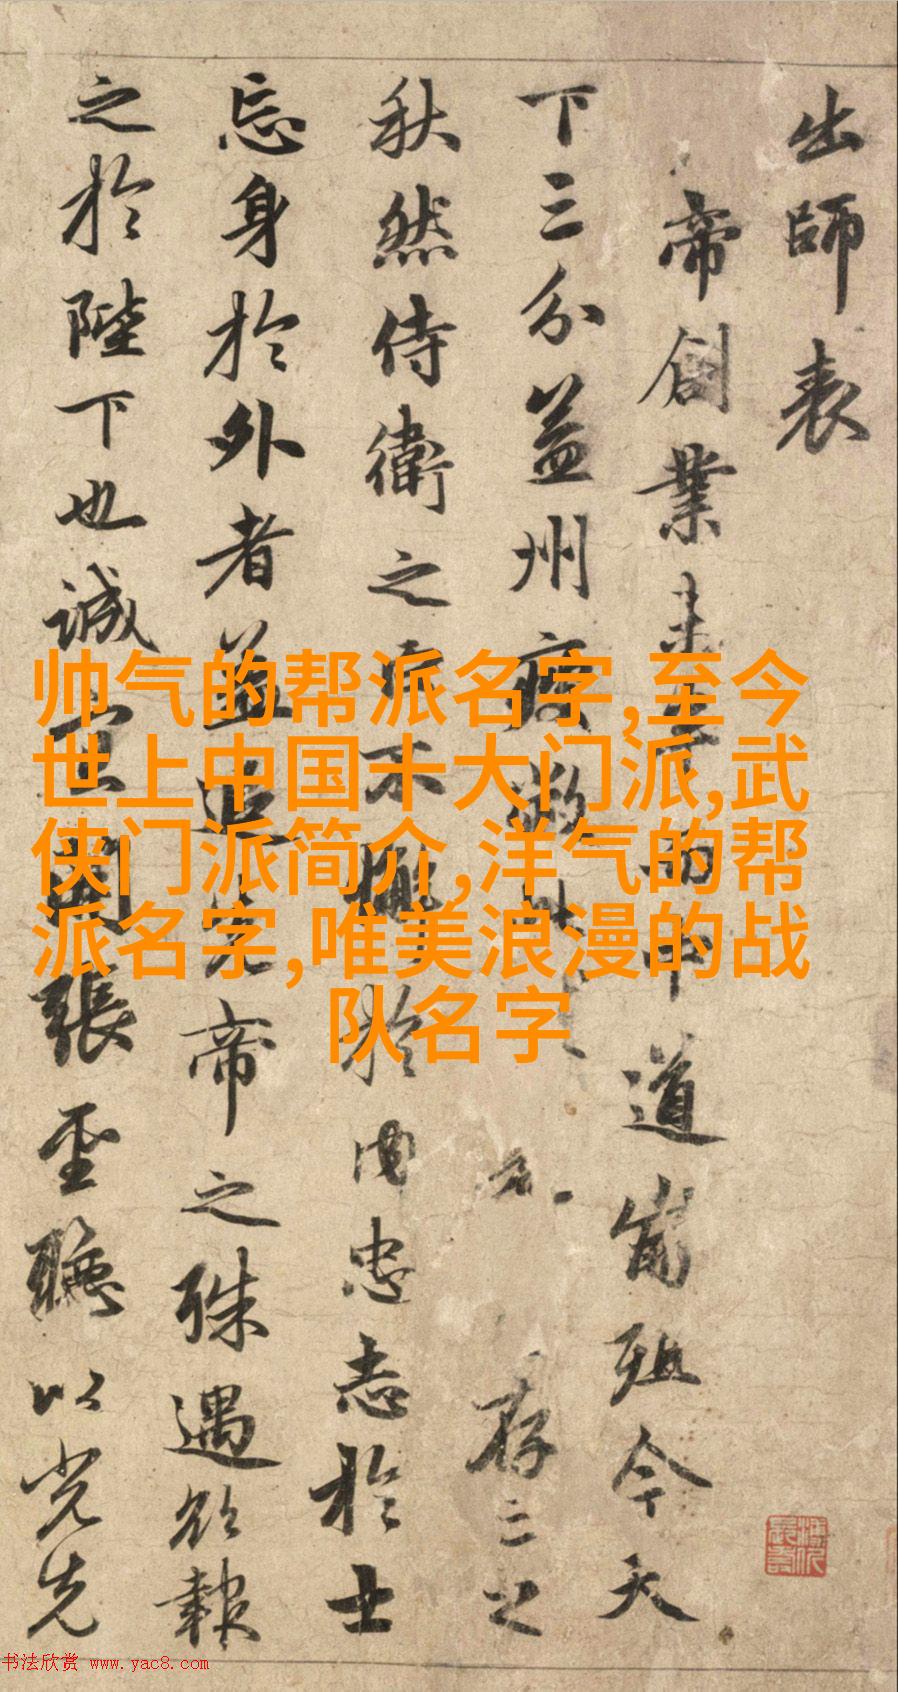 出師表
帝創業未而中道崩殂今天
下三分益州疲弊存之
秋然侍衛之臣不懈於內忠志於士
忘身於外者蓋追先帝之殊遇欲報
之於陛下也誠宜開張聖聽以光先
帅气的帮派名字,至今
世上中国十大门派,武
侠门派简介,洋气的帮
派名字,唯美浪漫的战
队名字
书法欣赏 www.yac8.com